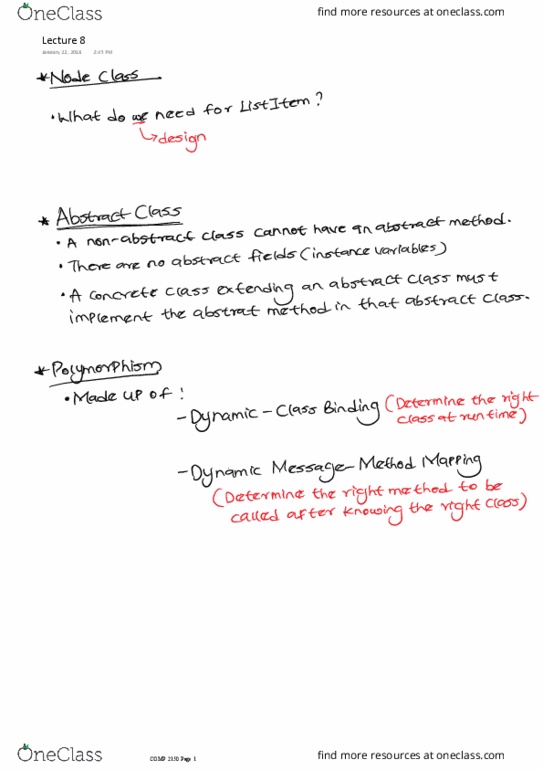 OneClass
find more resources at oneclass.com
Lecture 8
2:35 PM
* Node Class
• What do we need for ListItem?
↳ design
* Abstract Class
• A non-abstract class cannot have an abstract method.
• There are no abstract fields (instance variables)
• A concrete class extending an abstract class must
implement the abstrat method in that abstract class.
* Polymorphism
• Made up of :
- Dynamic - Class Binding (Determine the right
class at run time)
- Dynamic Message - Method Mapping
(Determine the right method to be
called after knowing the right class)
OneClass
Page 1
find more resources at oneclass.com